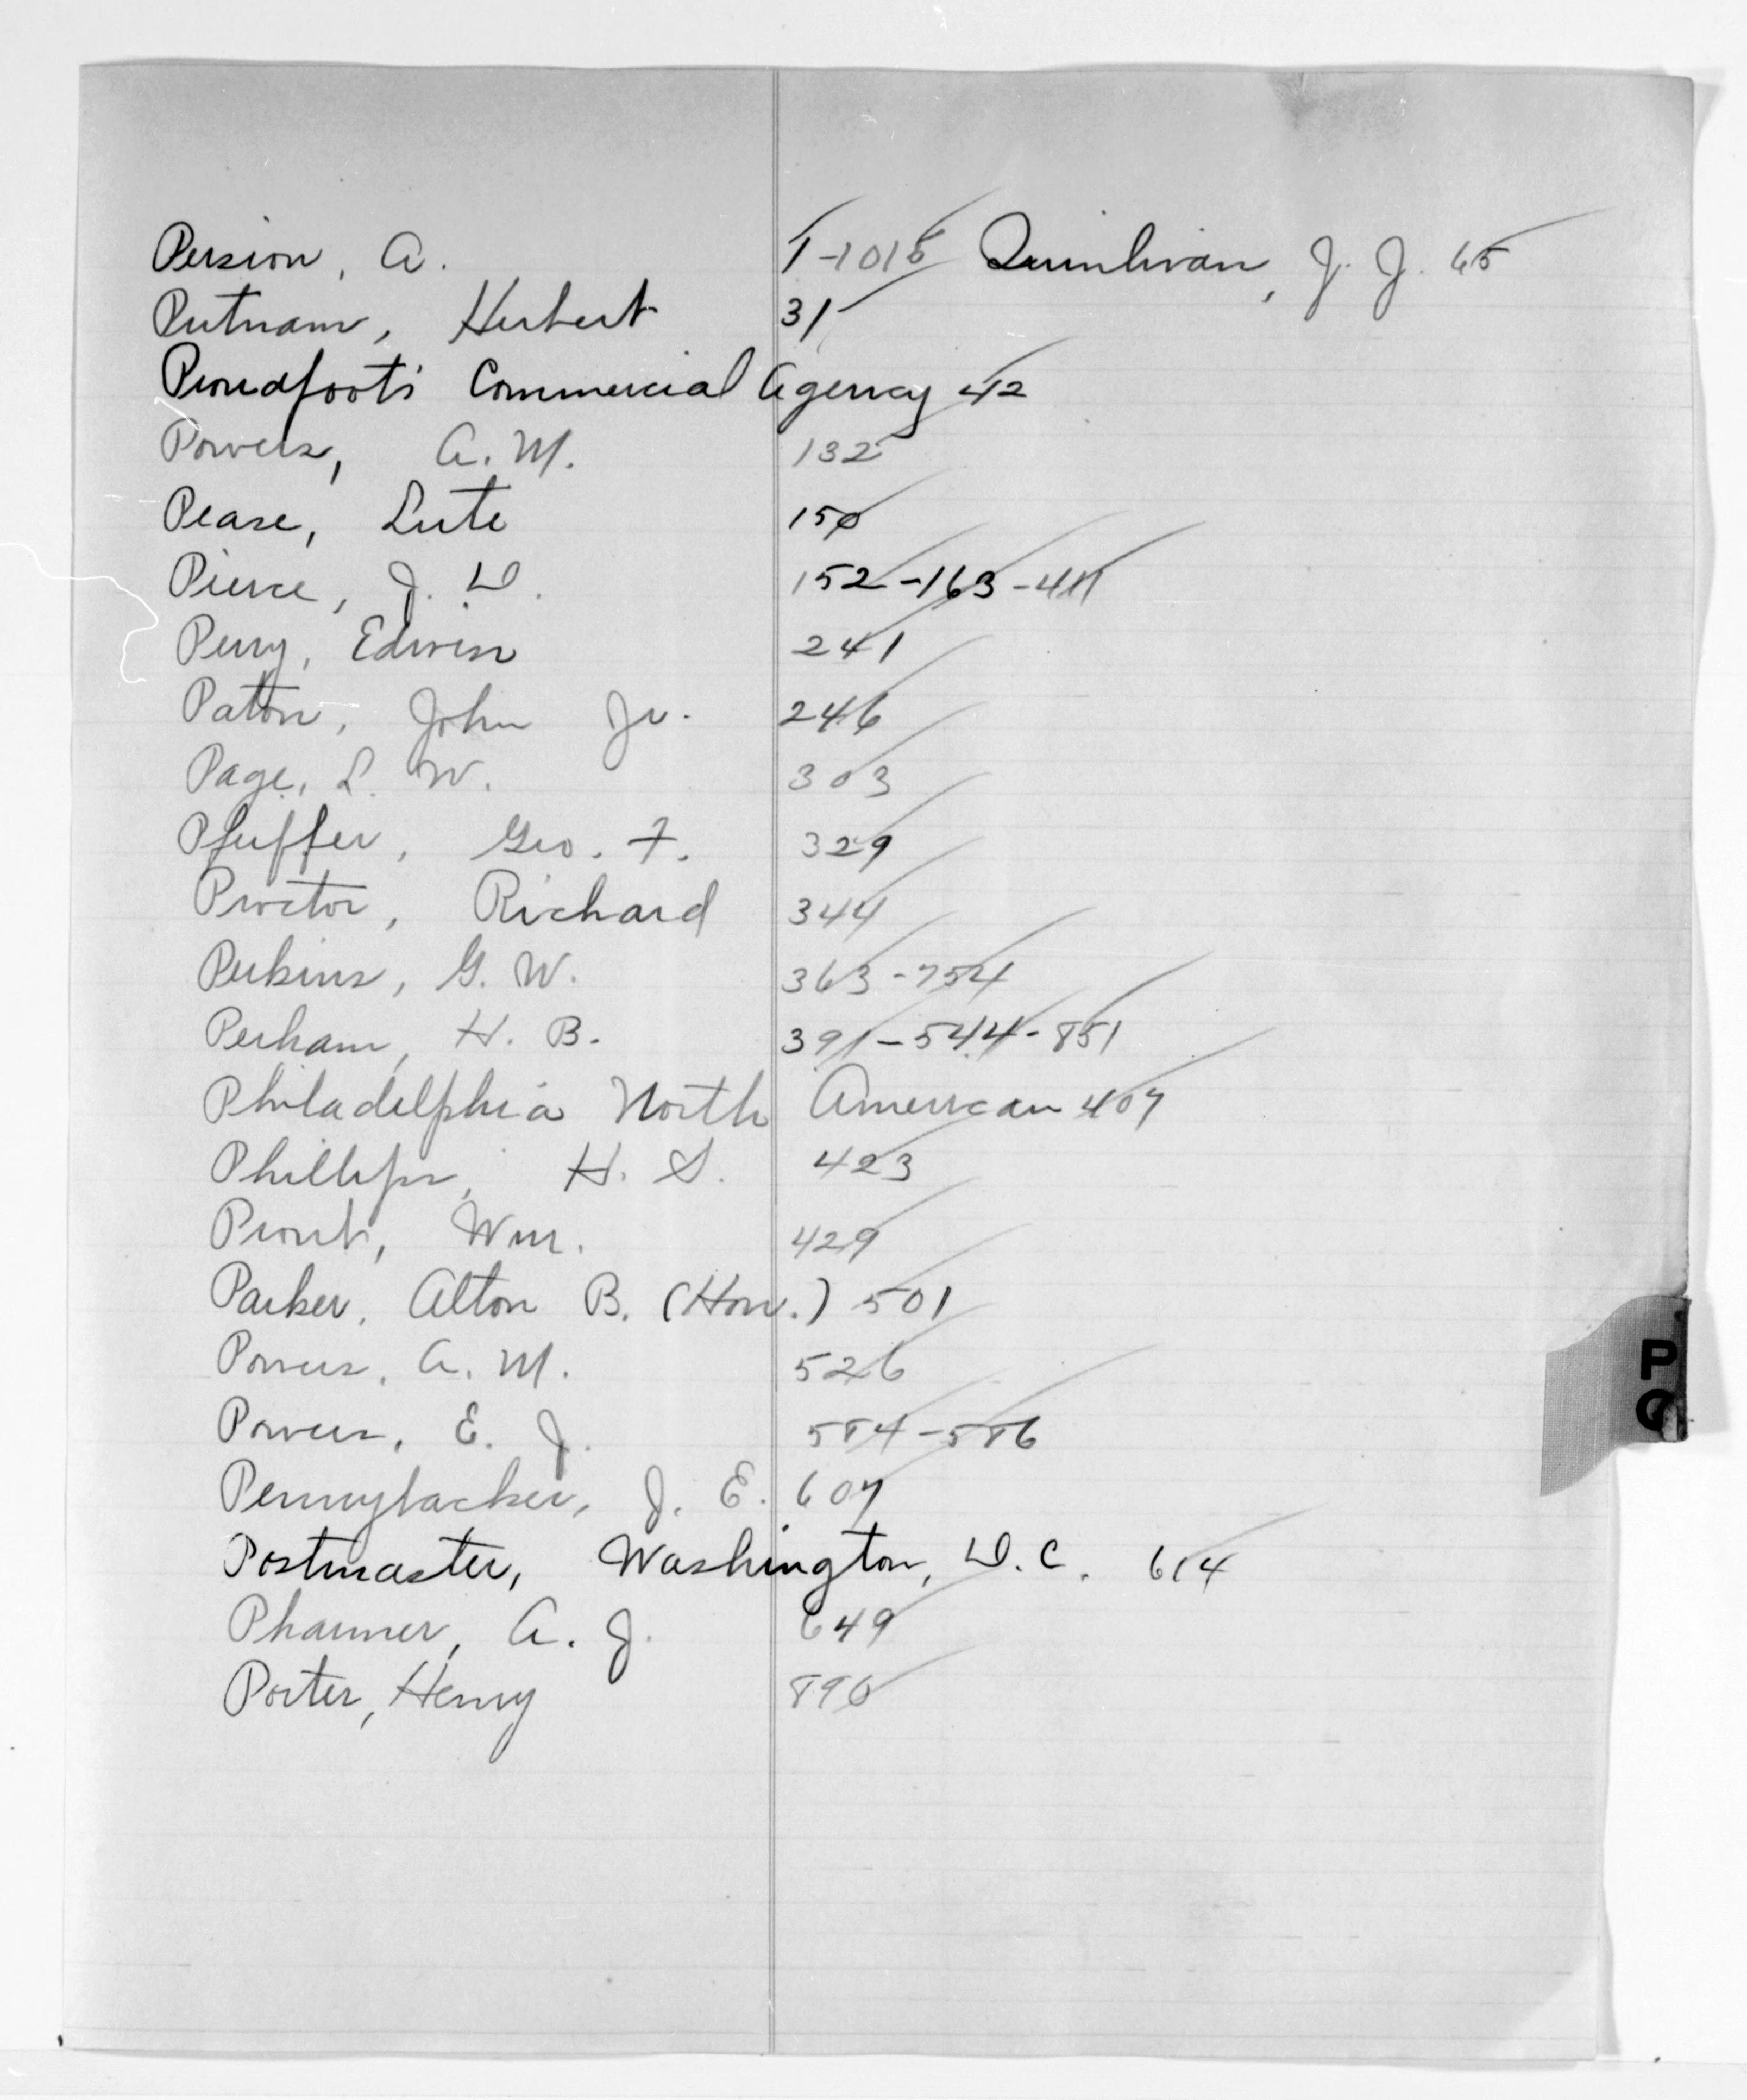 Persion, A. 1-1015 Quinlivan, J. J. 65
Putnam, Herbert 31
Proudfoot's Commercial Agency 42
Powers, A. M. 132
Pease, Lute 150
Pierce, J. D. 152-163-411
Perry, Edwin 241
Paton, John Jr. 246
Page, L. W. 303
Pfeiffer, Geo. F. 329
Proctor, Richard 344
Perkins, G. W. 363-754
Perham, H. B. 391-544-851
Philadelphia North American 407
Phillips, H. S. 423
Prout, Wm. 429
Parker, Alton B. (Hon.) 501
Powers, A. M. 526
Powers, E. J. 584-586
Pennybacker, J. E. 607
Postmaster, Washington, D.C. 614
Pharmer, A. J. 649
Porter, Henry 890
P
Q